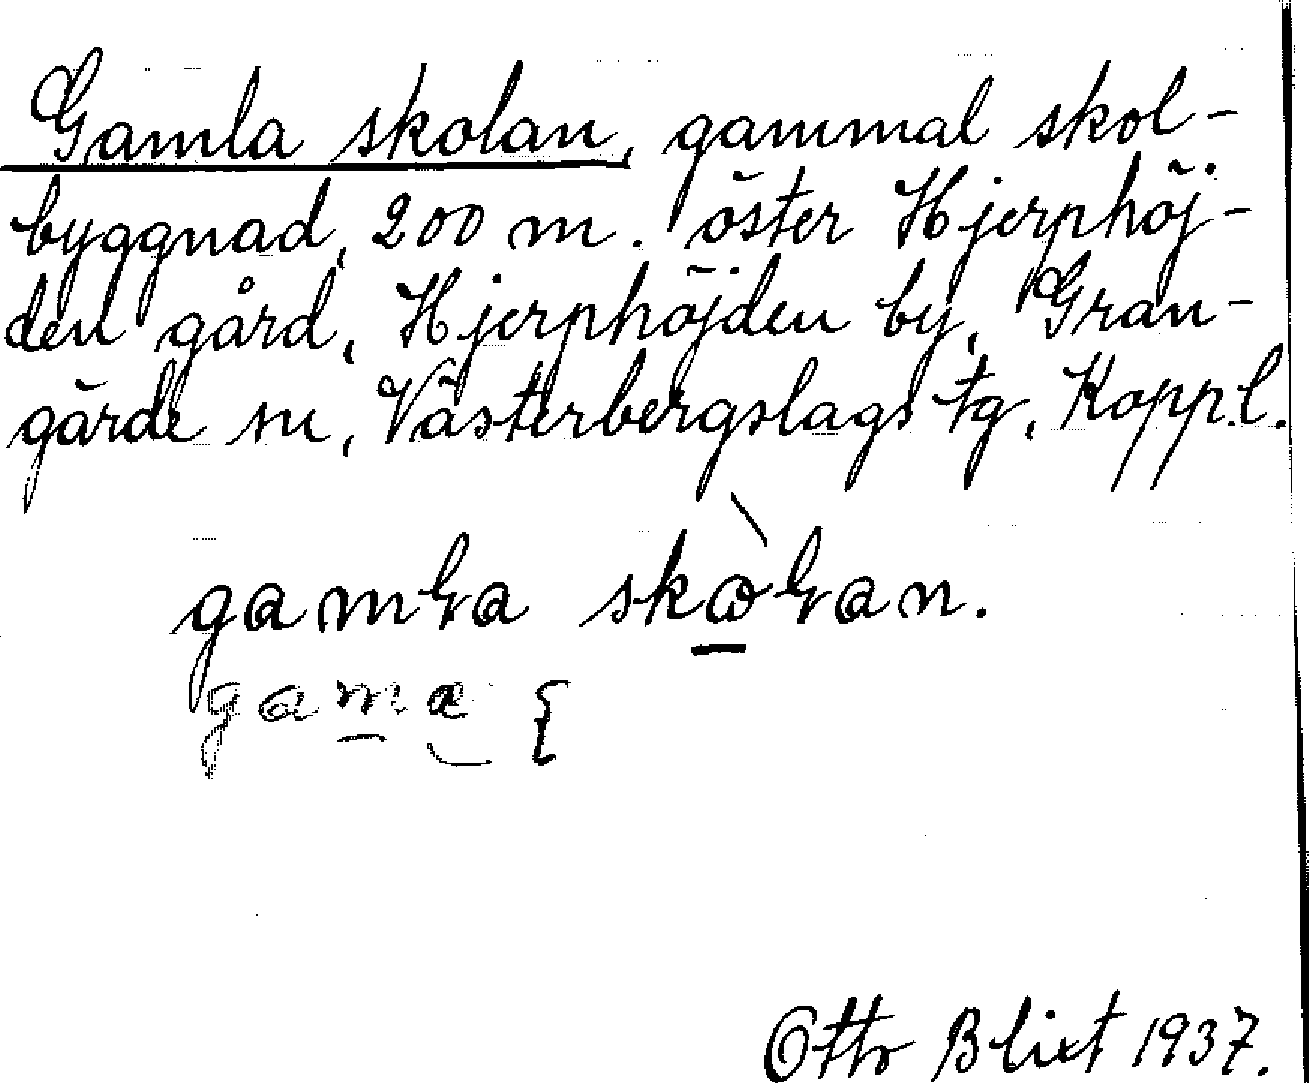 Gamla skolan, gammal skol-
byggnad, 200 m. öster Hjerphöj-
den gård, Hjerphöjden by, Gran-
gärde sn, Västerbergslags tg, Kopp.l.
gamla skolan.
gama {
Otto Blixt 1937.